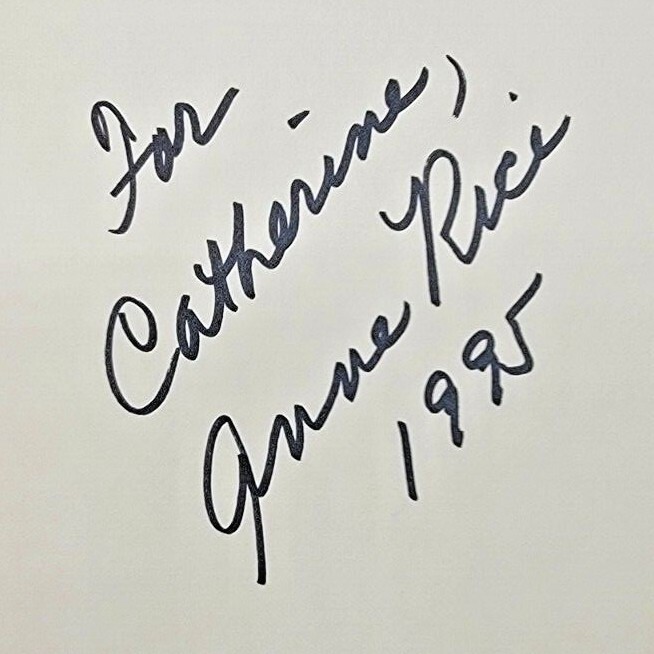 For
Catherine,
Anne Rice
1995